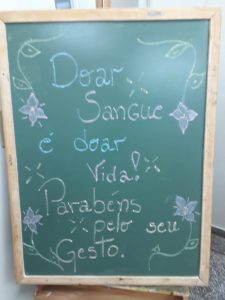 Doar
Sangue
é doar
Vida!
Parabéns
pelo seu
Gesto.